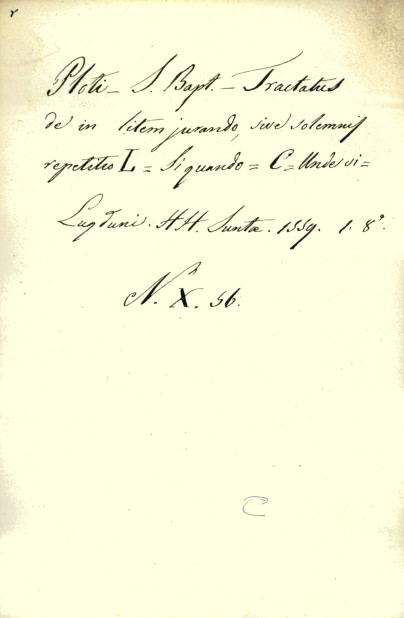 r
Ploti – J. Bapt. – Tractatus
de in litem jurando, sive solemnis
repetitio L = Si quando = C = Unde vi =
Lugduni. HH. Juntæ. 1559. 1. 8º.
N. X. 56.
C